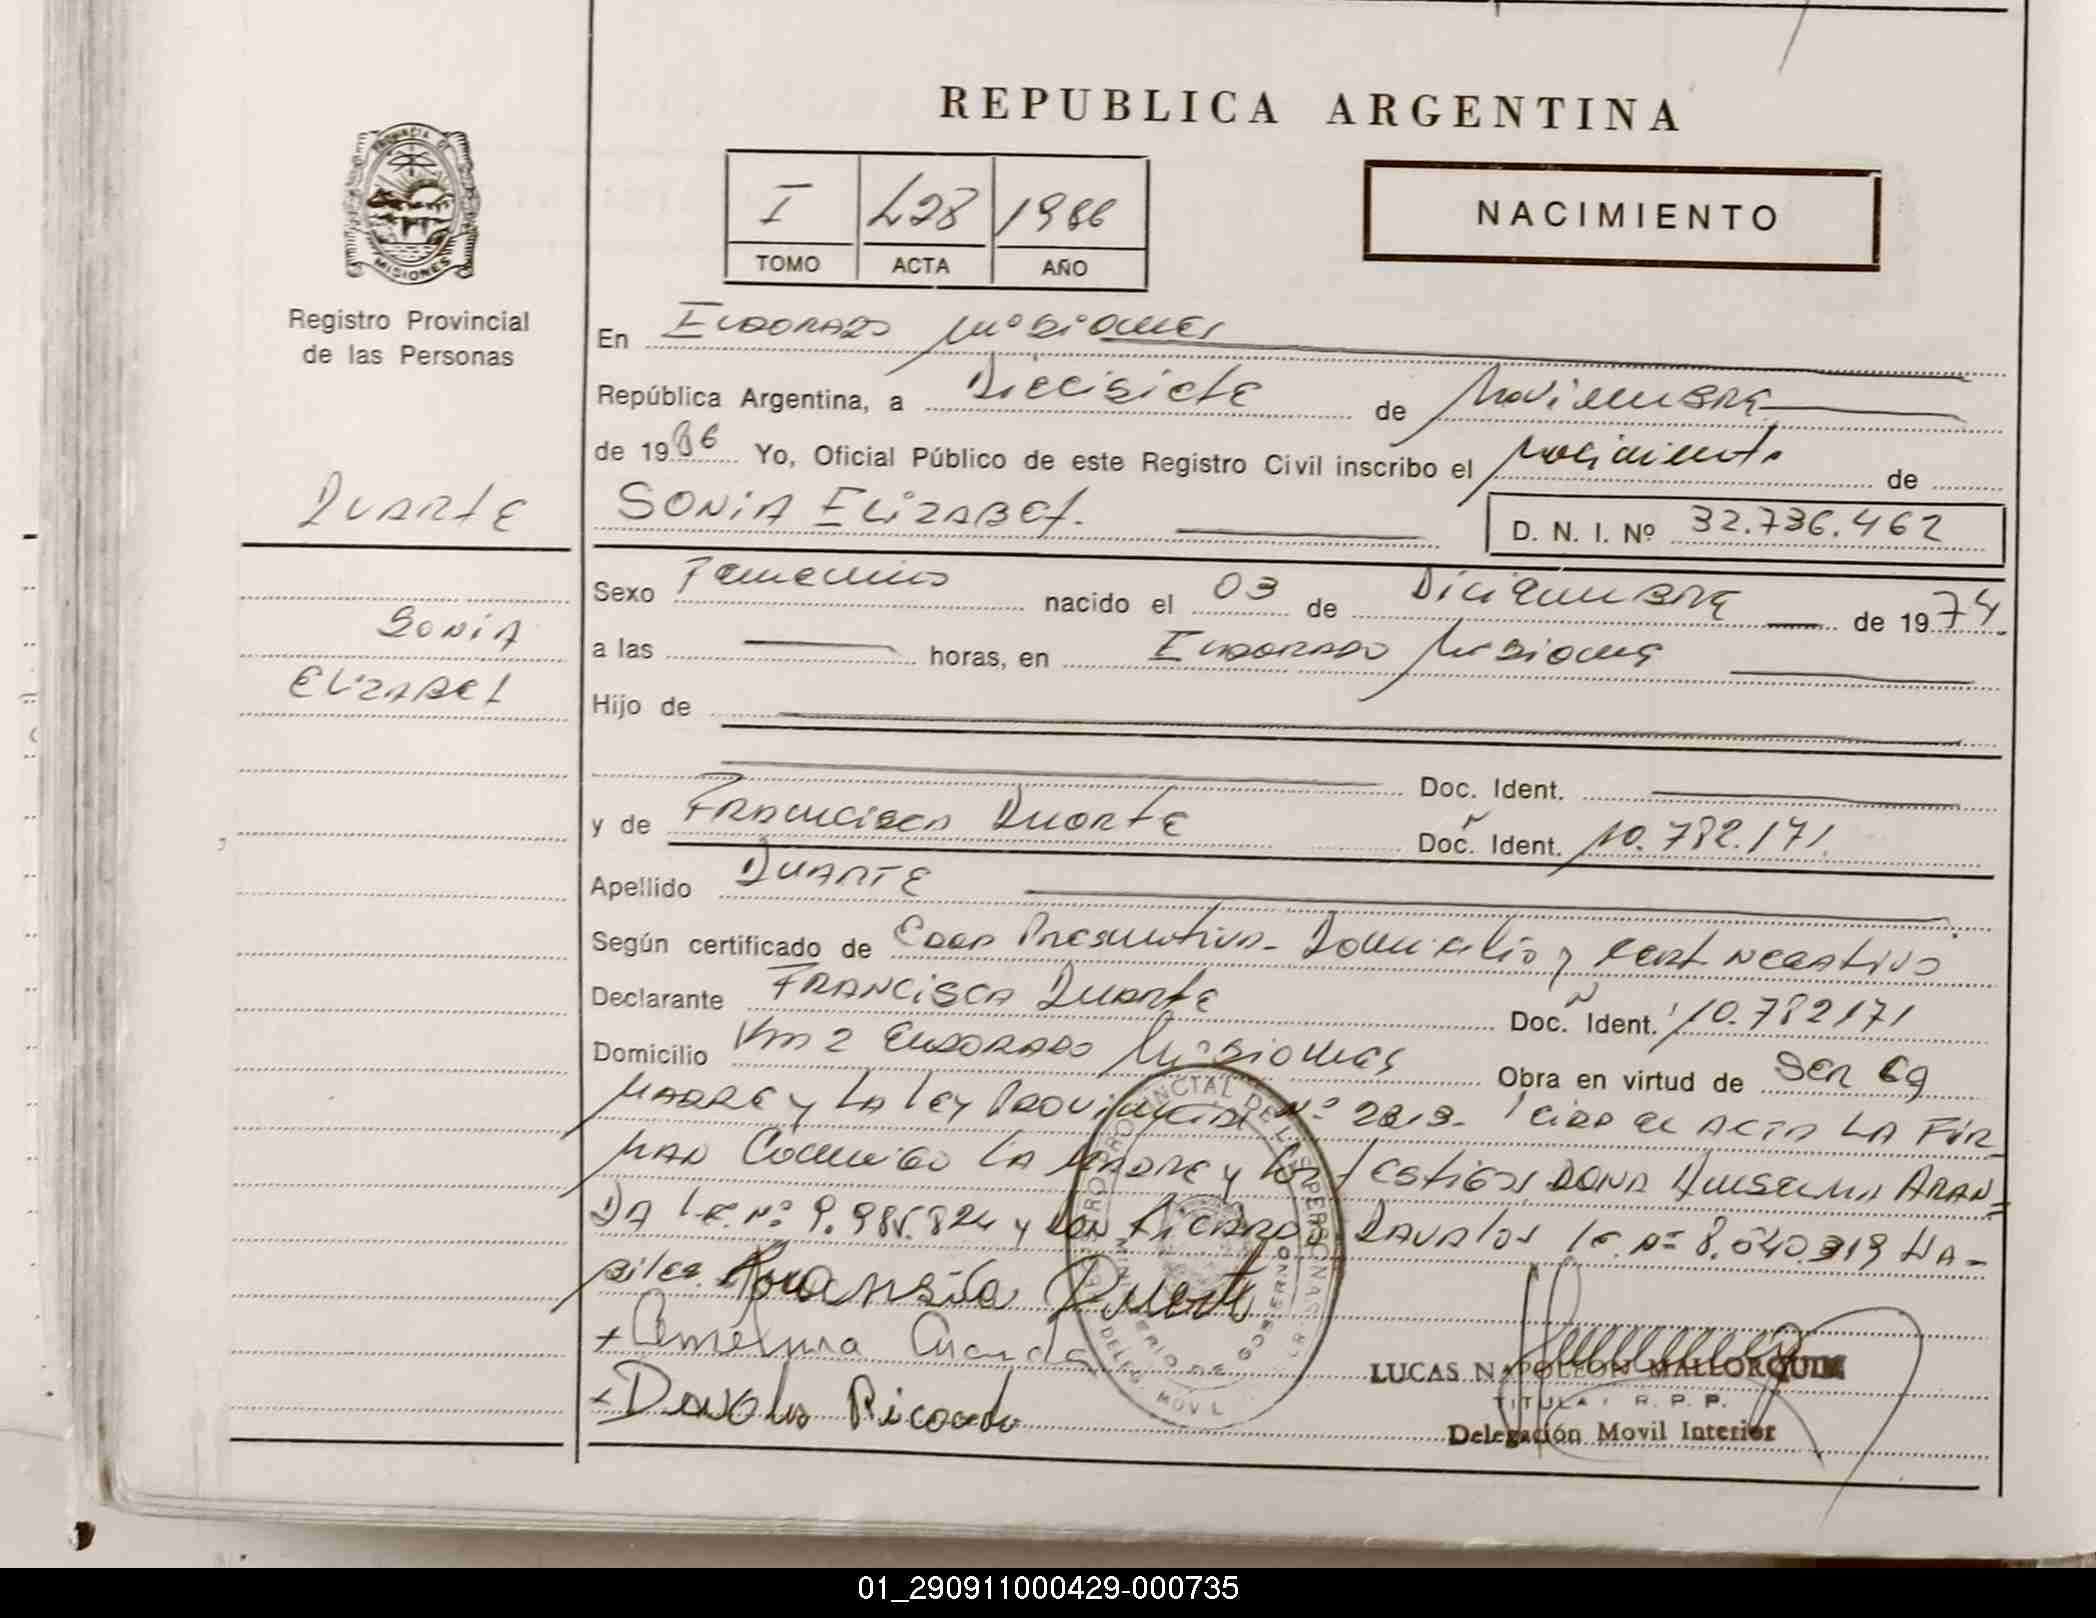 REPUBLICA ARGENTINA
PROVINCIA DE
MISIONES
Registro Provincial
de las Personas
I 428 1986
TOMO ACTA AÑO
NACIMIENTO
En Eldorado Misiones
República Argentina, a Diecisiete de Noviembre
de 1986 Yo, Oficial Público de este Registro Civil inscribo el nacimiento de
Duarte
SONIA ELIZABET.
D. N. I. Nº 32.736.462
Sonia
Elizabet
Sexo Femenino nacido el 03 de Diciembre de 1974
a las horas, en Eldorado Misiones
Hijo de
Doc. Ident.
y de Francisca Duarte Doc. Ident. 10.782.171
Apellido DUARTE
Según certificado de Edad Presuntiva - Domicilio y Cert negativo
Declarante Francisca Duarte Doc. Ident. 10.782171
Domicilio Km 2 Eldorado Misiones Obra en virtud de Ser la
Madre y La ley Provincial Nº el Acta La Fir
man Conmigo La Madre y los testigos Dona Anselma Aran=
da Nº y Don Ricardo Davalos Nº 8.040.319 Ha-
biles.
Duarte
+
+ Davalos Ricardo
REGISTRO PROVINCIAL DE LAS PERSONAS
MINISTERIO DE GOBIERNO
DELEG. MOVIL
LUCAS NAPOLEON MALLORQUIN
TITULAR R. P. P.
Delegación Movil Interior
01_290911000429-000735